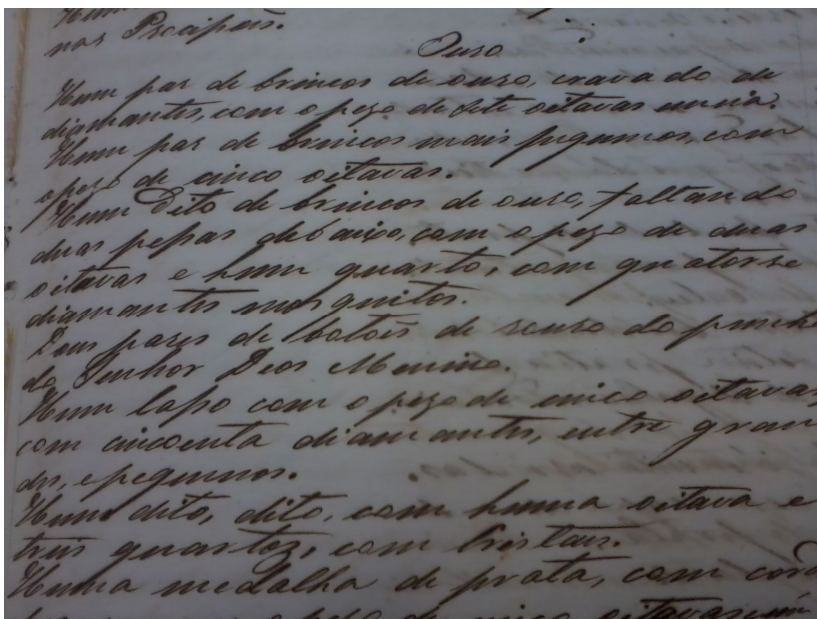 nas Procipoẽs.
Ouro
Hum par de brincos de ouro, cravado de
diamantes, com o pezo de sete oitavas e meia.
Hum par de brincos mais pequenos, com
o pezo de cinco oitavas.
Hum Dito de brincos de ouro, faltando
duas pessas debaixo, com o pezo de duas
oitavas e hum quarto, com quatorze
diamantes mosquitos.
Dous pares de botoẽs de ouro do punho
do Senhor Deos Menino.
Hum laço com o pezo de cinco oitavas,
com cincoenta diamantes, entre gran
des, e pequenos.
Hum dito, dito, com huma oitava e
tres quartos, com Cristaes.
Huma medalha de prata, com
o pezo de cinco oitavas